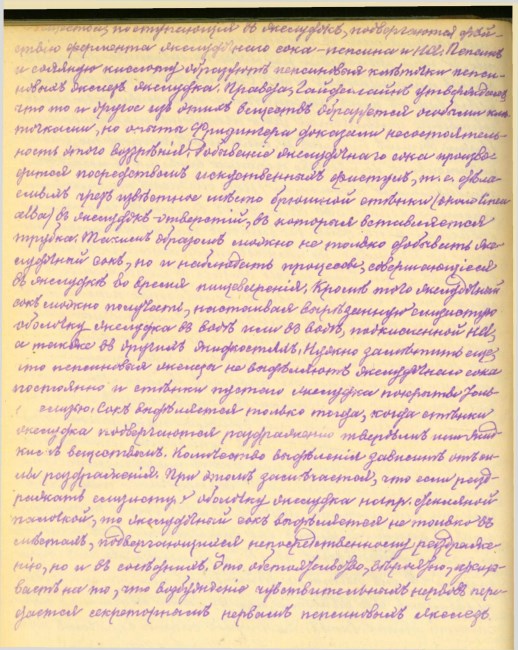 поступающія въ желудокъ, подвергаются дѣй-
ствію фермента желудочнаго сока – пепсина и HCl. Пепсинъ
и соляную кислоту образуютъ пепсиновыя клѣточки пепси-
новыхъ железъ желудка. Правда, Гайденгайнъ утверждаетъ,
что то и другое изъ этихъ веществъ образуется особыми клѣ-
точками, но опыты доказали несостоятель-
ность этого воззрѣнія. Добываніе желудочнаго сока произво-
дится посредствомъ искусственныхъ фистулъ, т. е. дѣла-
емыхъ чрезъ извѣстное мѣсто брюшной стѣнки (около linea
alba) въ желудкѣ отверстій, въ которыя вставляется
трубка. Такимъ образомъ можно не только добывать же-
лудочный сокъ, но и наблюдать процессы, совершающіеся
въ желудкѣ во время пищеваренія. Кромѣ того желудочный
сокъ можно получать, настаивая вырѣзанную слизистую
оболочку желудка въ водѣ или въ водѣ, подкисленной HCl,
а также въ другихъ жидкостяхъ. Нужно замѣтить еще,
что пепсиновыя железа не выдѣляютъ желудочнаго сока
постоянно и стѣнки пустого желудка покрыты
слизью. Сокъ выдѣляется только тогда, когда стѣнки
желудка подвергаются раздраженію твердымъ или жид-
кимъ веществомъ. Количество выдѣленія зависитъ отъ си-
лы раздраженія. При этомъ замѣчается, что если разд-
ражать слизистую оболочку желудка напр. стеклянной
палочкой, то желудочный сокъ выдѣляется не только въ
мѣстахъ, подвергающихся непосредственному раздраже-
нію, но и въ сосѣднихъ. Это обстоятельство, вѣроятно, указы-
ваетъ на то, что возбужденіе чувствительныхъ нервовъ пере-
дается секреторнымъ нервамъ пепсиновыхъ железъ